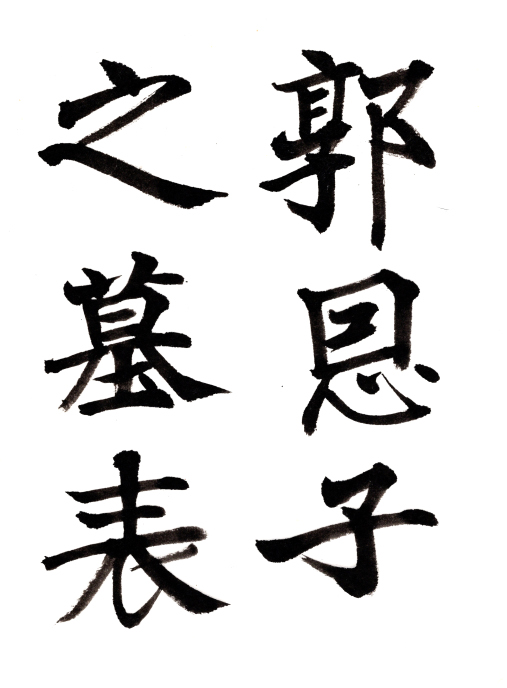 郭恩子
之墓表